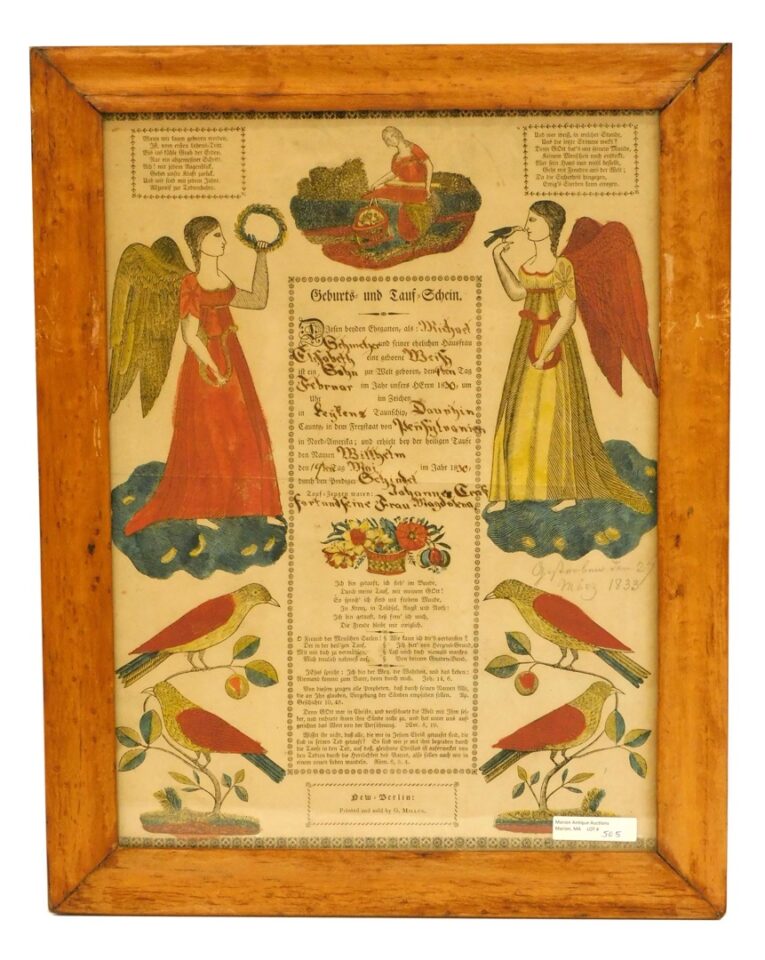 Wann wir kaum geboren werden,
Ist vom ersten Lebens-Tritt
Bis ins kühle Grab der Erden,
Nur ein abgemeßner Schritt.
Ach! mit jedem Augenblick,
Gehet unsre Kraft zurück,
Und wir sind mit jedem Jahre,
Allzureif zur Todtenbahre.
Und wer weiß, in welcher Stunde,
Uns die letzte Stimme weckt?
Denn GOtt hat's mit seinem Munde,
Keinem Menschen noch entdeckt.
Wer sein Haus nun wohl bestellt,
Geht mit Freuden aus der Welt;
Da die Sicherheit hingegen,
Ewig's Sterben kann erregen.
Geburts- und Tauf-Schein.
Diesen beyden Ehegatten, als: Michael
und seiner ehelichen Hausfrau
Elisabeth eine geborne Weiß
ist ein Sohn zur Welt geboren, den Tag
Februar im Jahr unsers HErrn 18 um
Uhr im Zeichen
in Leykens Taunschip, Dauphin
Caunty, in dem Freystaat von Pensylvanien
in Nord-Amerika; und erhielt bey der heiligen Taufe
den Namen Willhelm
den Tag Mai im Jahr 18
durch den Prediger Schindel
Tauf-Zeugen waren: Johannes
und seine Frau Magdalena
Ich bin getauft, ich steh' im Bunde,
Durch meine Tauf, mit meinem GOtt!
So sprech' ich stets mit frohem Munde,
In Kreuz, in Trübsal, Angst und Noth:
Ich bin getauft, deß freu' ich mich,
Die Freude bleibt mir ewiglich.
O Freund der Menschen Seelen!
Der in der heil'gen Tauf,
Mit mir dich zu vermählen,
Mich nahmst auf,
Wie kann ich dir's verdanken?
Ich Herzens-Grund,
Laß mich doch niemals wanken
Von deinem Gnaden-Bund.
JEsus spricht: Ich bin der Weg, die Wahrheit, und das Leben:
Niemand kommt zum Vater, denn durch mich. Joh. 14, 6.
Von diesem zeugen alle Propheten, daß durch seinen Namen Alle,
die an Ihn glauben, Vergebung der Sünden empfahen sollen. Ap.
Geschichte 10, 43.
Denn GOtt war in Christo, und versöhnete die Welt mit Ihm sel-
ber, und rechnete ihnen ihre Sünde nicht zu, und hat unter uns auf-
gerichtet das Wort von der Versöhnung. 5, 19.
Wisset ihr nicht, daß alle, die wir in Jesum Christ getauft sind, die
sind in seinen Tod getauft? So sind wir je mit ihm begraben durch
die Taufe in den Tod, auf daß, gleichwie Christus ist auferwecket von
den Todten durch die Herrlichkeit des Vaters, also sollen auch wir in
einem neuen Leben wandeln. Röm. 6, 3. 4.
New-Berlin:
Printed and sold by G. Miller.
Gestorben den 27
März 1833
Marion Antique Auctions
Marion, MA LOT # 505